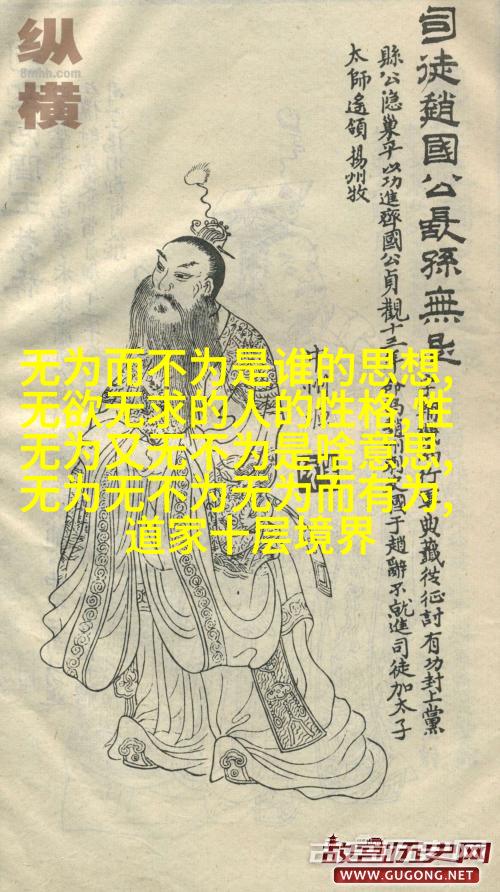 纵横
8mhh.com
司徒趙國公長孫無忌
行軍典籤從征討有功封上黨
縣公隱巢平以功進齊國公貞觀十
國于趙辭不就進司徒加太子
太師遙領揚州牧
无为而不为是谁的思想,
无欲无求的人的性格,性
无为又无不为是啥意思,
无为无不为无为而有为,
道家十层境界
故宫历史网
WWW.GUGONG.NET